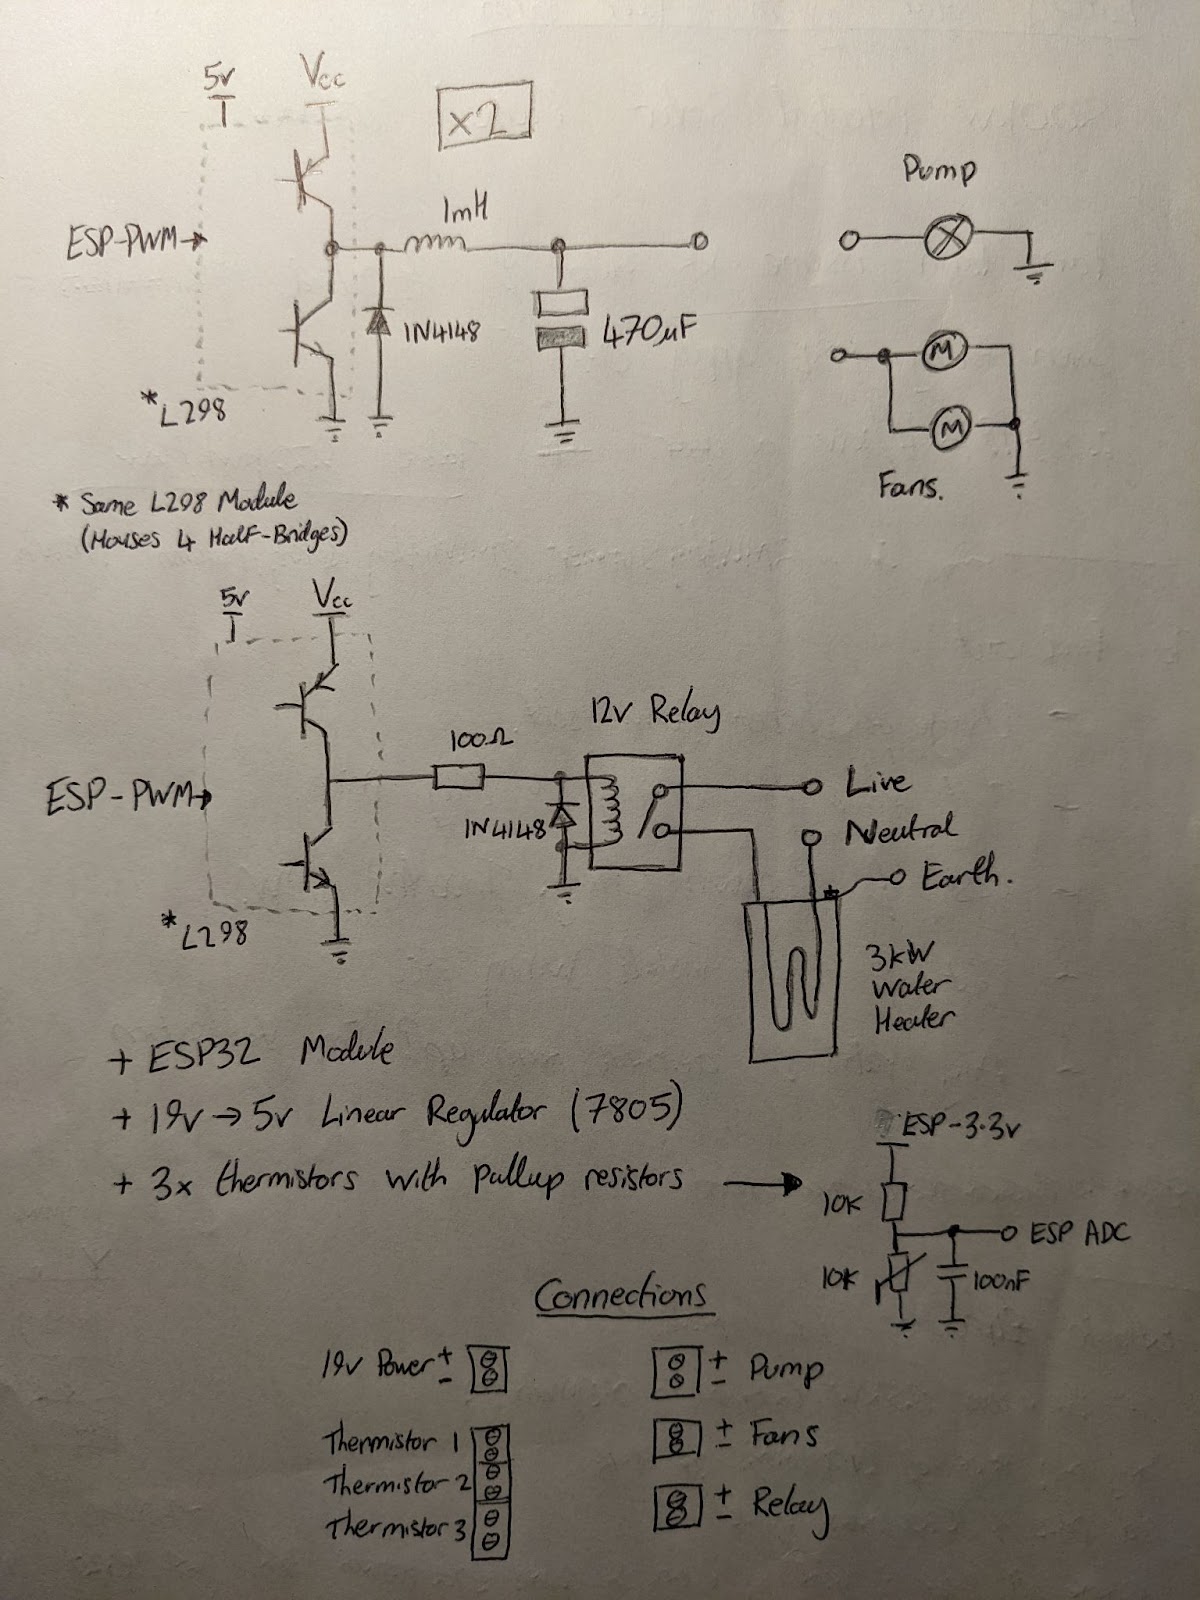 5v Vcc
x2
1mH
ESP-PWM
1N4148
470µF
*L298
Pump
M
M
Fans.
* Same L298 Module
(Houses 4 Half-Bridges)
5v Vcc
12v Relay
100Ω
ESP-PWM
1N4148
Live
Neutral
Earth.
*L298
3kW
Water
Heater
+ ESP32 Module
+ 19v → 5v Linear Regulator (7805)
+ 3x thermistors with pullup resistors →
ESP-3.3v
10K
ESP ADC
10K
100nF
Connections
19v Power + -
+ - Pump
Thermistor 1
+ - Fans
Thermistor 2
+ - Relay
Thermistor 3